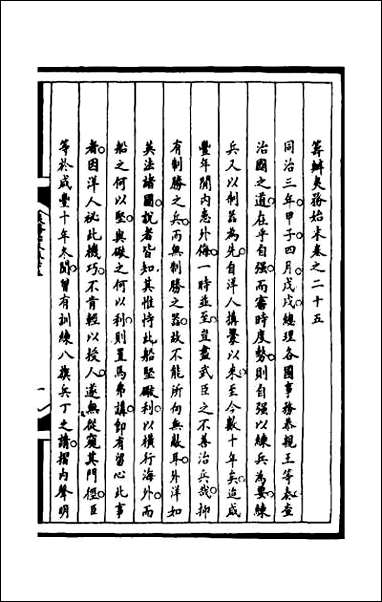 籌辦夷務始末卷之二十五
同治三年甲子四月戊戌總理各國事務恭親王等奏查
治國之道在乎自强而審時度勢則自强以練兵為要練
兵又以制器為先自洋人搆釁以來至今數十年矣迨咸
豐年間內患外侮一時並至豈盡武臣之不善治兵哉抑
有制勝之兵而無制勝之器故不能所向無敵耳外洋如
英法諸國說者皆知其惟恃此船堅礮利以橫行海外而
船之何以堅與礮之何以利則置焉弗講卽有留心此事
者因洋人祕此機巧不肯輕以授人遂無從窺其門徑臣
等於咸豐十年冬間曾有訓練八旗兵丁之請摺內聲明